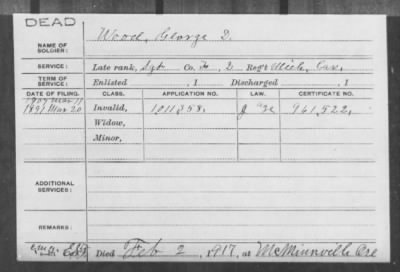 DEAD
NAME OF SOLDIER: Wood, George D.
SERVICE: Late rank, Sgt. Co. F, 2 Reg't Mich. Cav.
TERM OF SERVICE: Enlisted , 1 Discharged , 1
DATE OF FILING. CLASS. APPLICATION NO. LAW. CERTIFICATE NO.
1907 Mar 11
1891 Mar 20 Invalid, 1011358, 961,522,
Widow,
Minor,
ADDITIONAL SERVICES:
REMARKS:
Died Feb 2, 1917, at McMinnville Ore